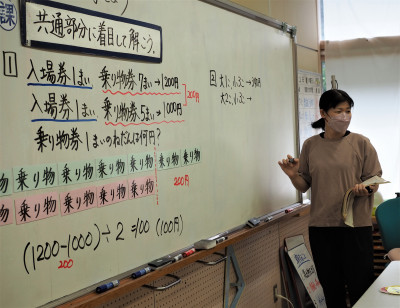 課
共通部分に着目して解こう。
1 入場券1まい 乗り物券7まい→1200円
入場券1まい 乗り物券5まい→1000円
200円
乗り物券1まいのねだんは何円?
物 乗り物 乗り物 乗り物 乗り物 乗り物 乗り物
物 乗り物 乗り物 乗り物 乗り物
200円
(1200-1000)÷2=100 (100円)
200
2 大1こ、小3こ→
大2こ、小3こ→